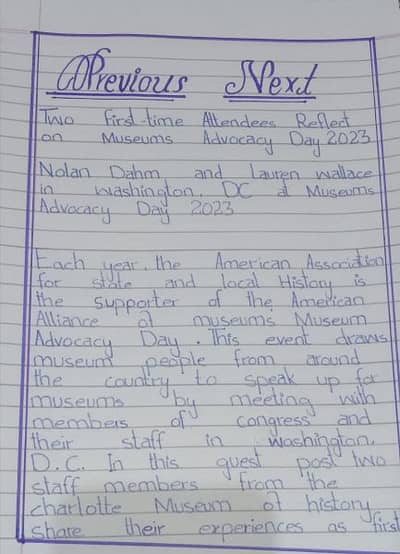 Previous Next
Two first-time Attendees Reflect
on Museums Advocacy Day 2023
Nolan Dahm and Lauren wallace
in washington, DC at Museums
Advocacy Day 2023
Each year, the American Association
for state and local History is
the supporter of the American
Alliance of museums Museum
Advocacy Day. This event draws
museum people from around
the country to speak up for
museums by meeting with
members of congress and
their staff in washington,
D.C. In this guest post two
staff members from the
charlotte Museum of history
share their experiences as first